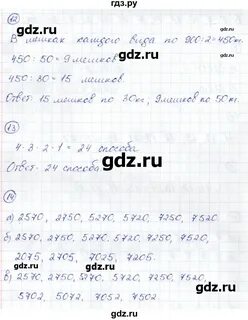 gdz.ru
12
В мешках каждого вида по 900:2=450кг.
450 : 50 = 9 мешков
450 : 30 = 15 мешков.
Ответ: 15 мешков по 30кг, 9 мешков по 50кг.
gdz.ru
gdz.ru
13
4·3·2·1 = 24 способа
Ответ: 24 способа.
gdz.ru
gdz.ru
14
а) 2570, 2750, 5270, 5720, 7250, 7520.
б) 2570, 2750, 5270, 5720, 7250, 7520,
2075, 2705, 7025, 7205.
в) 2570, 2750, 5270, 5720, 7250, 7520,
5702, 5072, 7052, 7502
gdz.ru
gdz.ru